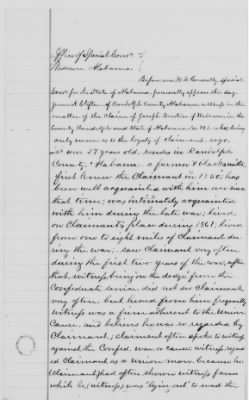 Office of Special Comr
Wedowee Alabama
Before me W. H. Connelly special
Comr for the State of Alabama, personally appears this day
James N. Clifton of Randolph County Alabama, witness in the
matter of the Claim of Joseph Benton of Wedowee, in the
County Randolph and State of Alabama, No 985 who being
duly sworn as to the loyalty of claimant, says:
57 years old, reside in Randolph
County, Alabama, a farmer & blacksmith,
first knew the Claimant in 1850; has
been well acquainted with him ever since
that time; was intimately acquainted
with him during the late war; lived
on Claimant's place during 1861; lived
from one to eight miles of Claimant dur-
ing the war; saw Claimant very often
during the first two years of the war; after
that, witness being on the dodge from the
Confederate service, did not see Claimant
very often, but heard from him frequently
witness was a firm adherent to the Union
Cause, and believes he was so regarded by
Claimant; claimant often spoke to witness
against the Confed. war or cause; witness regard
ed Claimant as a Union man, because he
(Claimant) had often shown witness favors
while he (witness) was "lying out" to evade the